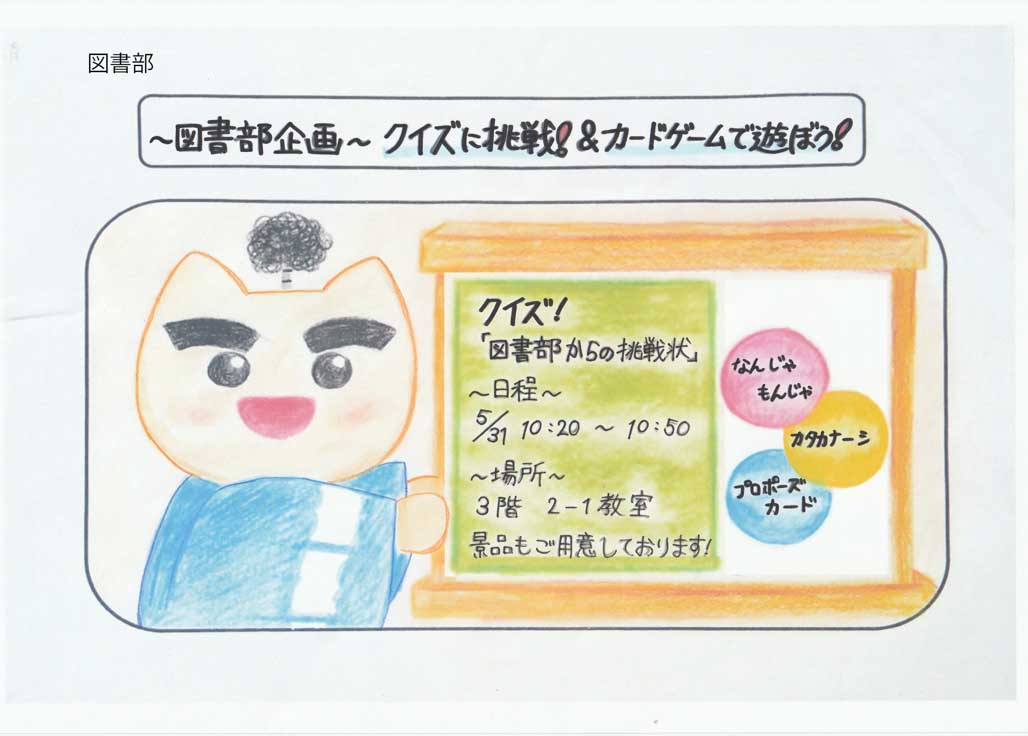 図書部
～図書部企画～ クイズに挑戦!&カードゲームで遊ぼう!
クイズ!
「図書部からの挑戦状」
～日程～
5/31 10:20 ～ 10:50
～場所～
3階 2-1教室
景品もご用意しております!
なんじゃ
もんじゃ
カタカナーシ
プロポーズ
カード